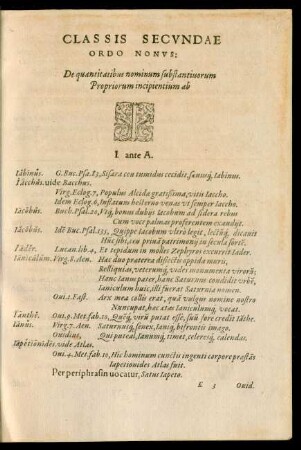 CLASSIS SECVNDAE
ORDO NONVS:
De quantitatibus nominum substantiuorum
Propriorum incipientium ab
I
I ante A.
Iābīnŭs. G.Buc.Psa.83, Sisara ceu tumidus cecidit, sæuusq; Iabinus.
Iācchŭs. vide Bacchus.
Virg. Eclog.7, Populus Alcidæ gratissima, vitis Iaccho.
Idem Eclog.6, Inflatum hesterno venas vt semper Iaccho.
Iăcōbŭs. Buch.Psal.20, Vtq; bonus dubijs Iacobum ad sidera rebus
Cum voce palmas proferentem exaudijt.
Iăcōbŭs. Idē Buc.Psal.135, Quippe Iacobum vlerò legit, lectūq; dicauit
Huc sibi, ceu primā patrimonij in secula sortē.
Iādĕr. Lucan.lib.4, Et tepidum in molles Zephyros excurrit Iader.
Iānĭcŭlŭm. Virg.8.Æn. Hæc duo præterea disiectis oppida muris,
Relliquias, veterumq; vides monumenta virorū:
Hanc Ianus pater, hanc Saturnus condidit vrbē,
Ianiculum huic, illi fuerat Saturnia nomen.
Oui.1.Fast. Arx mea collis erat, quā vulgus nomine nostro
Nuncupat, hæc ætas Ianiculumq; vocat.
Iānthē. Oui.9.Met.fab.12, Quāq; virū putat esse, suū fore credit Iāthe.
Iānŭs. Virg.7.Æn. Saturnusq; senex, Ianiq; bifrontis imago.
Ouidius, Qui puteal, Ianumq; timet, celeresq; calendas.
Iāpĕtĭōnĭdēs. vide Atlas.
Oui.4.Met.fab.10, Hic hominum cunctis ingenti corpore præstās
Iapetionides Atlas fuit.
Per periphrasin uocatur, Satus Iapeto.
E 3 Ouid.